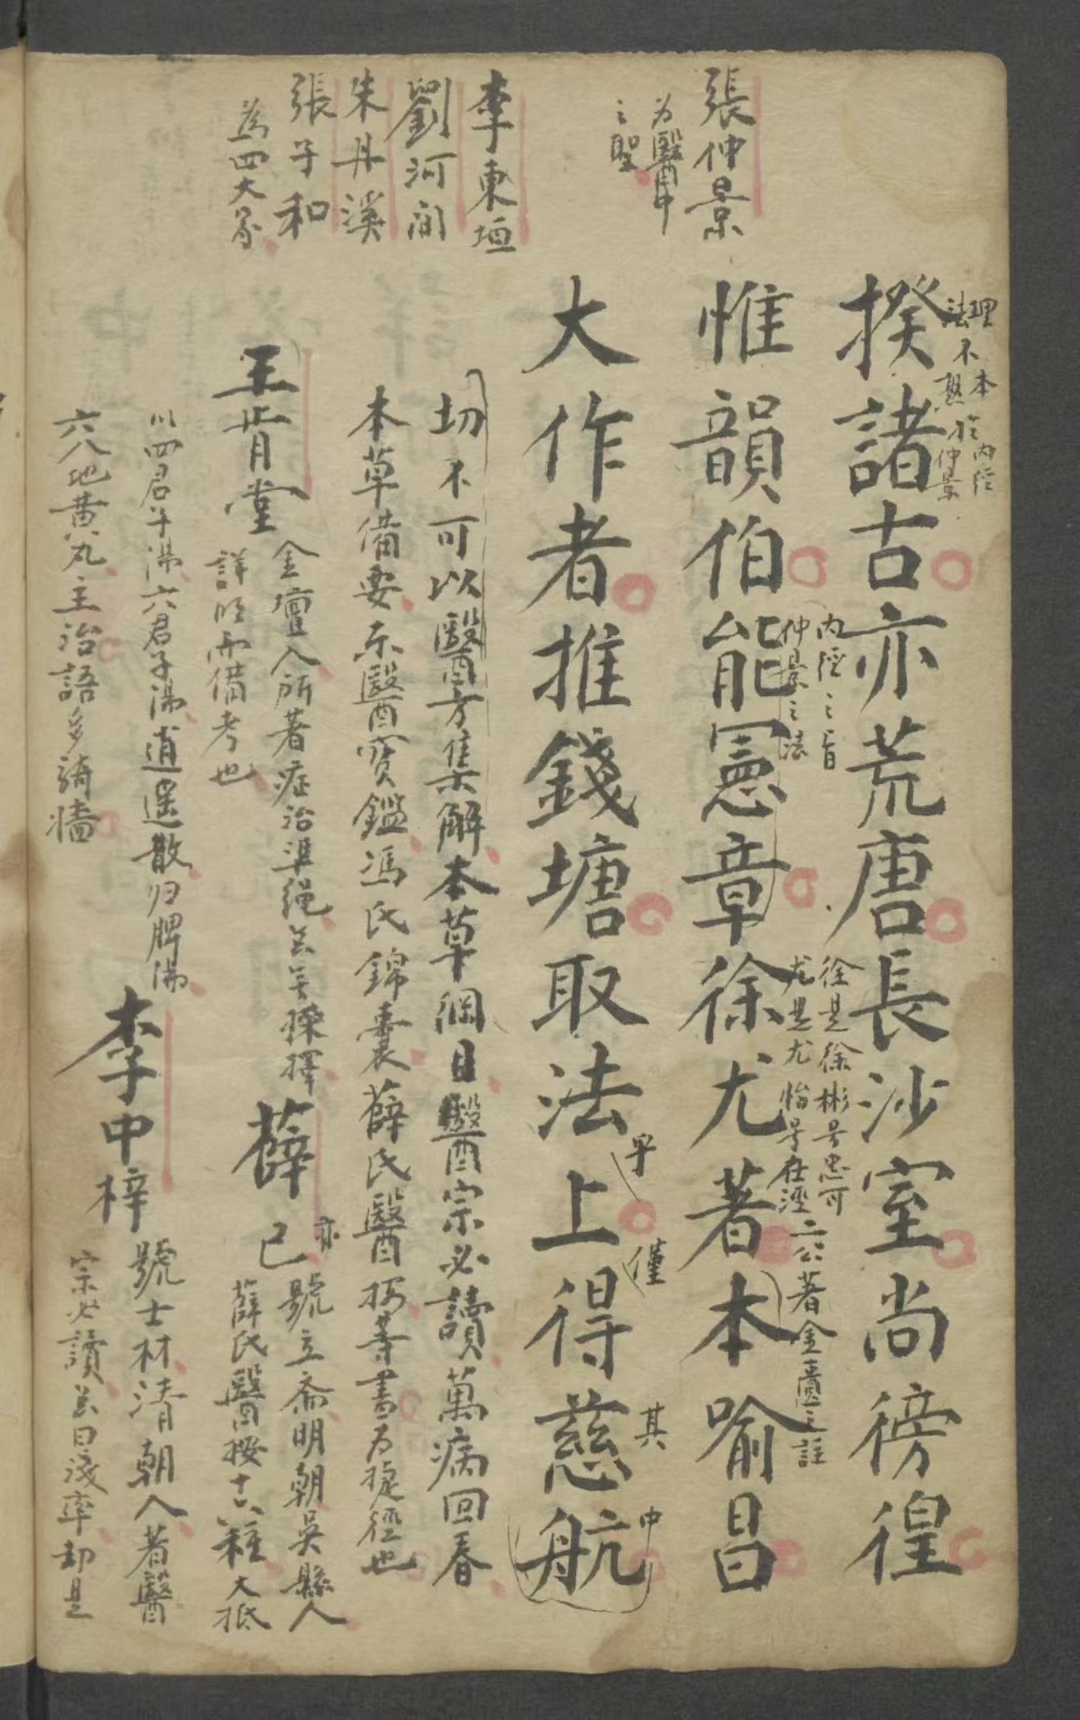 張仲景
为醫中
之聖
李東垣
劉河间
朱丹溪
張子和
為四大家
理本於内経
法不熟於仲景
揆諸古亦荒唐長沙室尚徬徨
内経之旨
仲景之法
徐是徐彬号忠可
尤是尤怡号在涇
二公著金匱之註
惟韻伯能憲章徐尤著本喻昌
大作者推錢塘取法上得慈航
早
僅
其
中
切不可以醫方集解本草綱目醫宗必讀萬病回春
本草備要東醫寶鑑馮氏錦囊薛氏醫按等書为捷徑也
王肯堂
金壇人所著症治準绳并無揀擇
詳明而備考也
薛
亦
己
號立斎明朝吳縣人
薛氏醫按十六種大抵
以四君子湯六君子湯逍遥散归脾湯
六八地黄丸主治語多騎墻
李中梓
號士材清朝人著醫
宗必讀并曰淺率却是